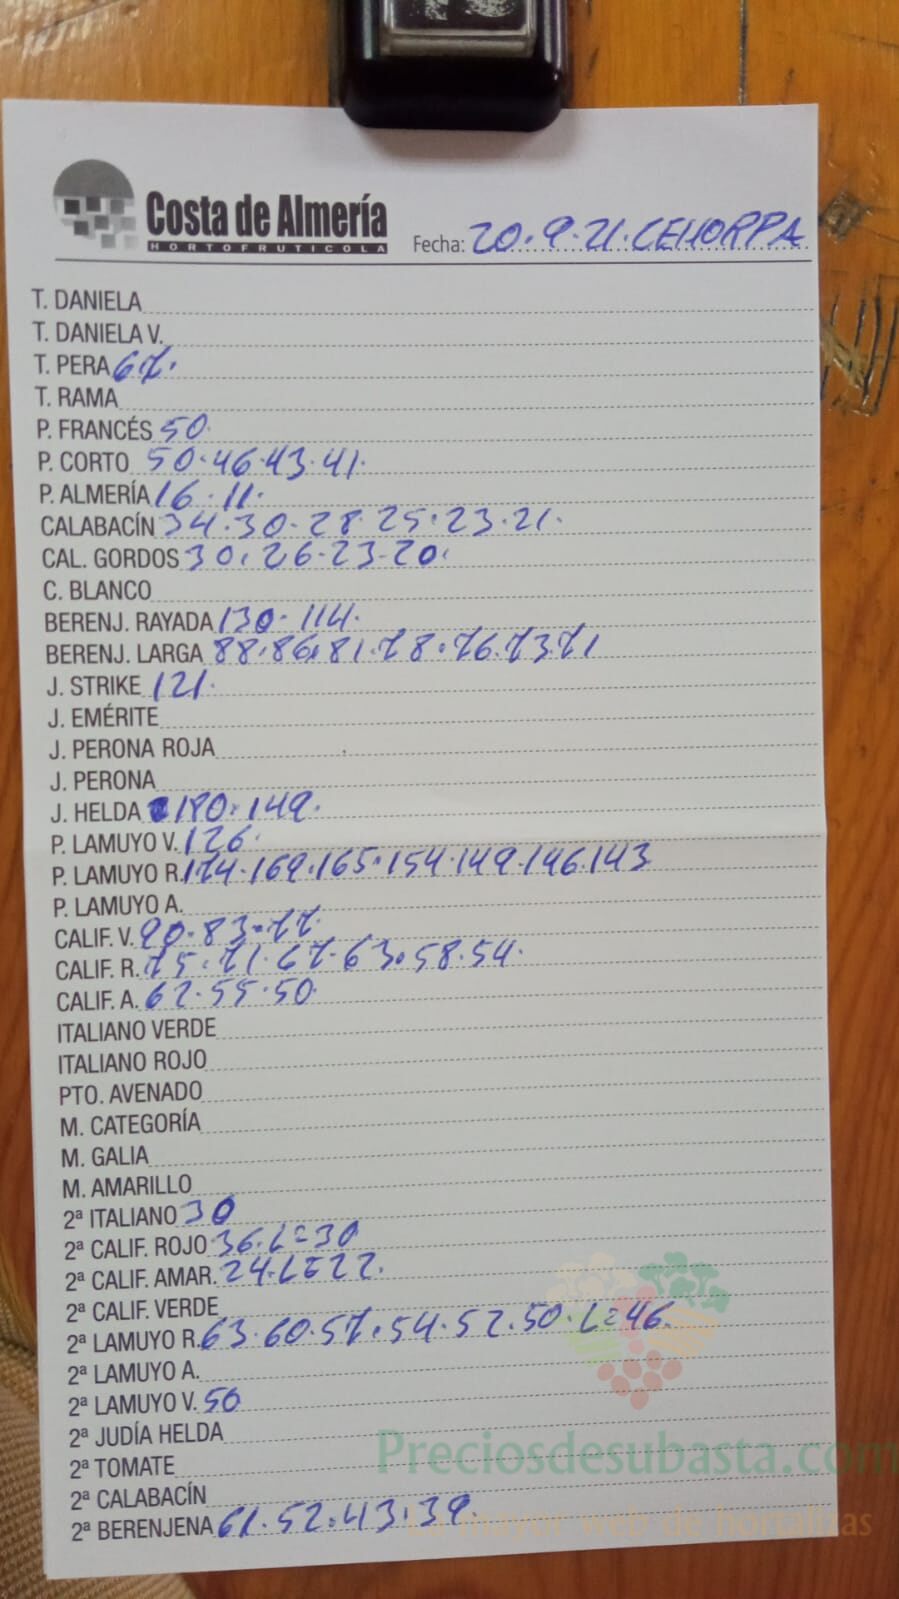 Costa de Almería
HORTOFRUTICOLA
Fecha: 20.9.21.CEHORPA
T. DANIELA
T. DANIELA V.
T. PERA 67.
T. RAMA
P. FRANCÉS 50.
P. CORTO 50.46.43.41.
P. ALMERÍA 16.11.
CALABACÍN 34.30.28.25.23.21.
CAL. GORDOS 30.26.23.20.
C. BLANCO
BERENJ. RAYADA 130.114.
BERENJ. LARGA 88.86.81.78.76.73.71
J. STRIKE 121.
J. EMÉRITE
J. PERONA ROJA
J. PERONA
J. HELDA 180.149.
P. LAMUYO V. 126.
P. LAMUYO R. 174.169.165.154.149.146.143
P. LAMUYO A.
CALIF. V. 90.83.77
CALIF. R. 75.71.67.63.58.54.
CALIF. A. 62.55.50
ITALIANO VERDE
ITALIANO ROJO
PTO. AVENADO
M. CATEGORÍA
M. GALIA
M. AMARILLO
2ª ITALIANO 30
2ª CALIF. ROJO 36.L=30
2ª CALIF. AMAR. 24.L=22.
2ª CALIF. VERDE
2ª LAMUYO R. 63.60.57.54.52.50.L=46.
2ª LAMUYO A.
2ª LAMUYO V. 50
2ª JUDÍA HELDA
Preciosdesubasta.com
2ª TOMATE
2ª CALABACÍN
2ª BERENJENA 61.52.43.39.
La mayor web de hortalizas